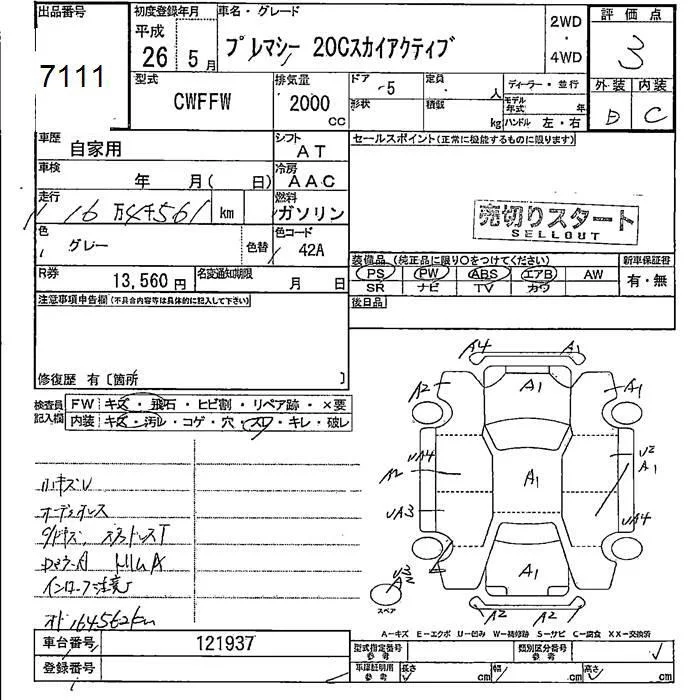 出品番号 初度登録年月 車名・グレード 2WD ・ 4WD 評価点
7111 平成 26 5月 プレマシー 20Cスカイアクティブ 3
型式 排気量 ドア 5 定員 人 ディーラー・並行 外装 内装
CWFFW 2000 CC 形状 積載 kg モデル年式 年 D C
ハンドル 左・右
車歴 自家用 シフト AT セールスポイント(正常に機能するものに限ります)
車検 年 月( 日) 冷房 AAC
走行 16万4千561 km 燃料 ガソリン 売切りスタート
SELLOUT
色 グレー 色替 色コード 42A
装備品(純正品に限り○をつけてください) 新車保証書
R券 13,560円 名変通知期限 月 日 PS PW ABS エアB AW 有・無
SR ナビ TV カワ
注意事項申告欄(不具合内容等は具体的に記入して下さい) 後日品
修復歴 有〔箇所 〕
検査員記入欄 FW キズ・飛石・ヒビ割・リペア跡・×要
内装 キズ・汚レ・コゲ・穴・スレ・キレ・破レ
小キズU
オーディオレス
インロー7注意
オド164562km
A4 A1
A2 A1 A1
UA4 U2 A1
A2 A1
UA3 UA4
A1
U3 A2
スペア
A2 A2
A-キズ E-エクボ U-凹み W-補修跡 S-サビ C-腐食 XX-交換済
車台番号 121937 型式指定番号 参考 類別区分番号 参考
登録番号 車庫証明用 参考 長さ cm 幅 cm 高さ cm